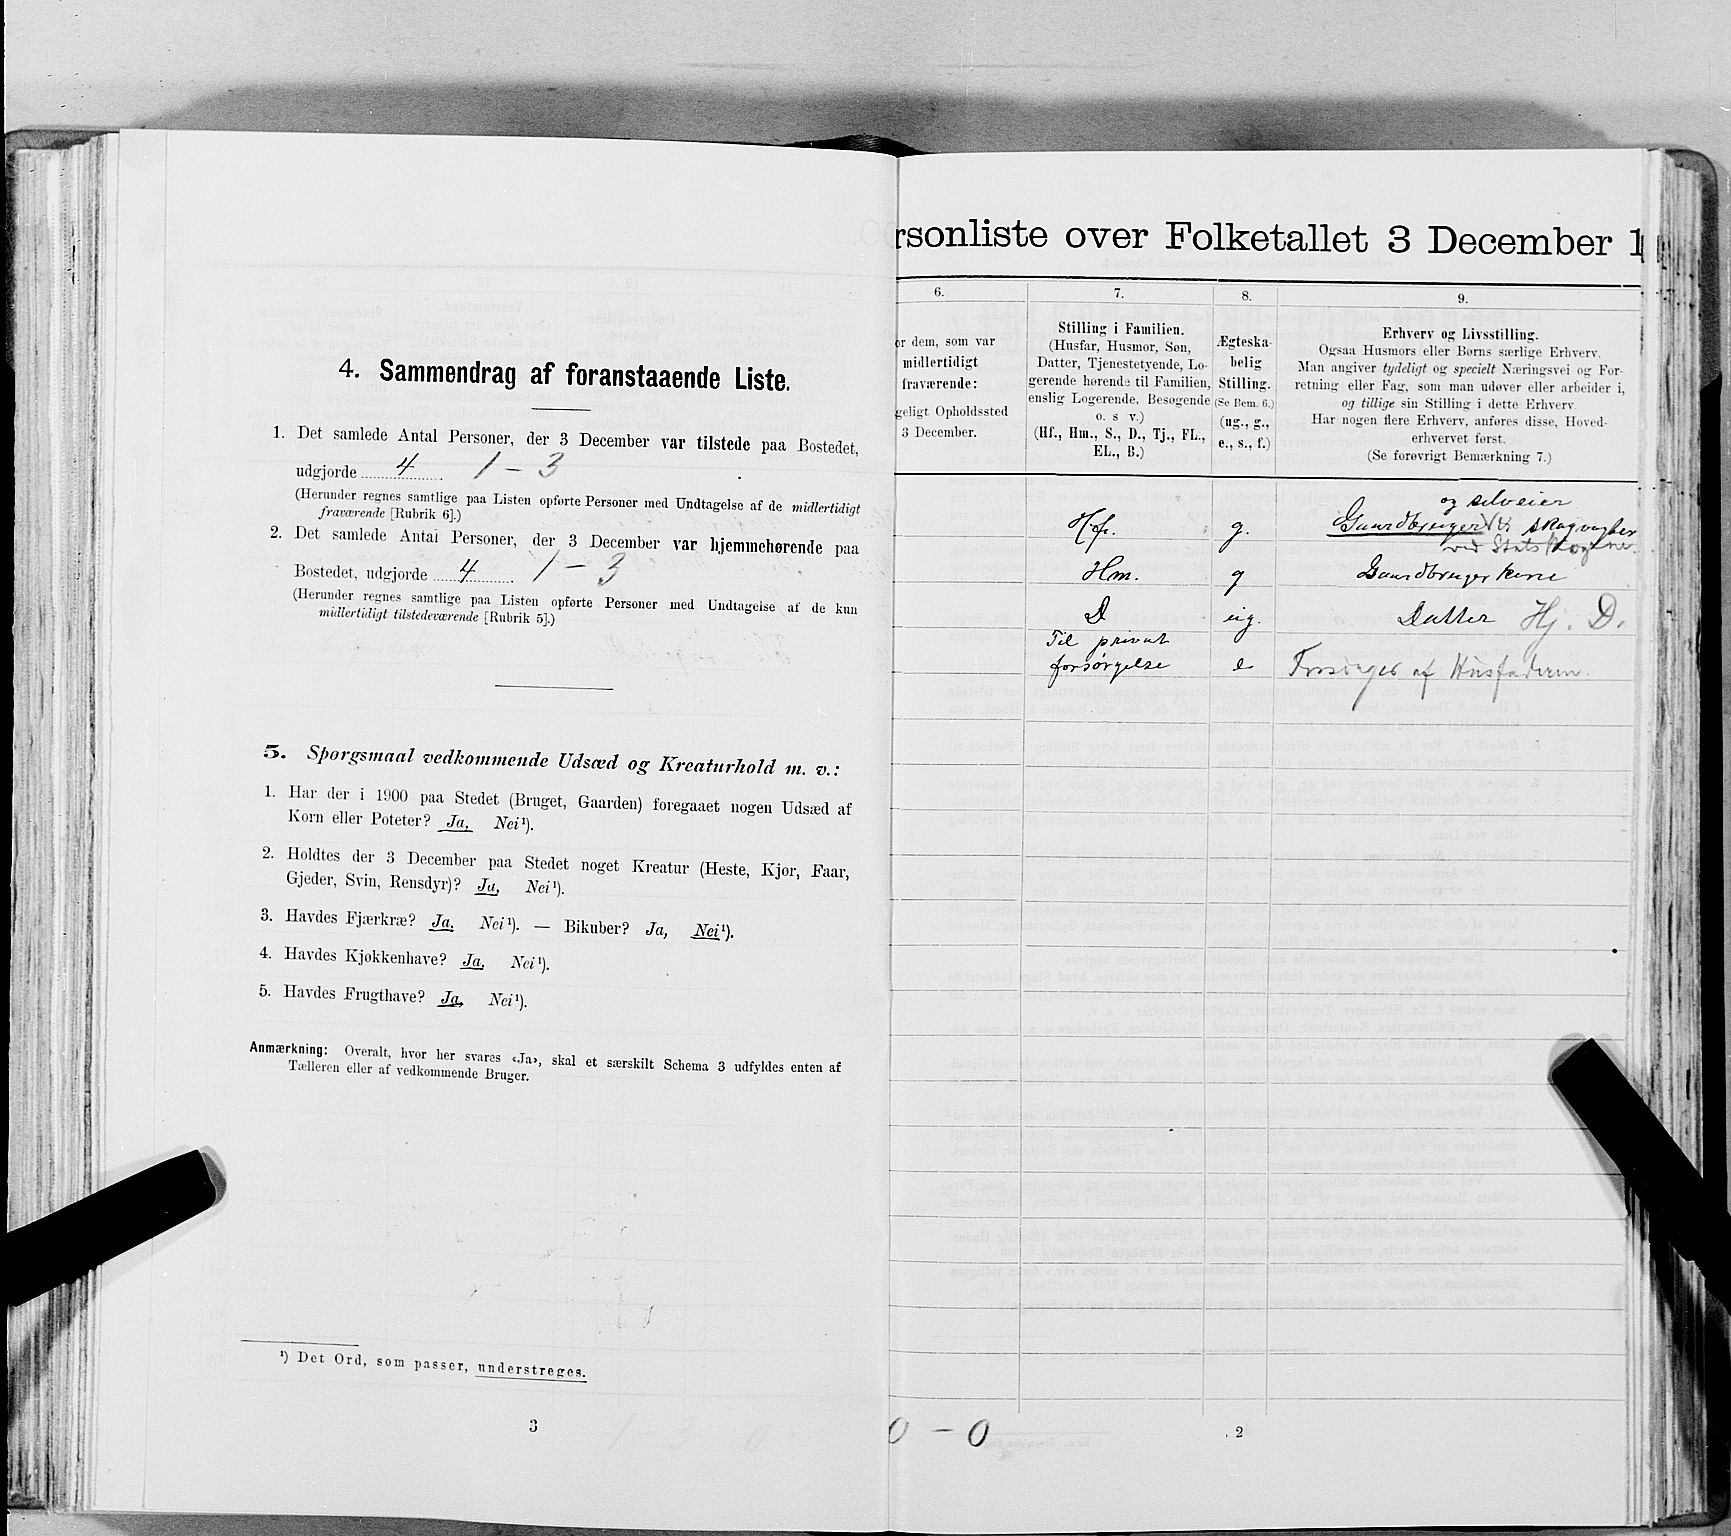 4. Sammendrag af foranstaaende Liste.
1. Det samlede Antal Personer, der 3 December var tilstede paa Bostedet,
udgjorde 4 1 – 3
(Herunder regnes samtlige paa Listen opførte Personer med Undtagelse af de midlertidigt
fraværende [Rubrik 6].)
2. Det samlede Antal Personer, der 3 December var hjemmehørende paa
Bostedet, udgjorde 4 1 – 3
(Herunder regnes samtlige paa Listen opførte Personer med Undtagelse af de kun
midlertidigt tilstedeværende [Rubrik 5].)
5. Spørgsmaal vedkommende Udsæd og Kreaturhold m. v.:
1. Har der i 1900 paa Stedet (Bruget, Gaarden) foregaaet nogen Udsæd af
Korn eller Poteter? Ja, Nei¹).
2. Holdtes der 3 December paa Stedet noget Kreatur (Heste, Kjør, Faar,
Gjeder, Svin, Rensdyr)? Ja, Nei¹).
3. Havdes Fjærkræ? Ja. Nei¹). — Bikuber? Ja, Nei¹).
4. Havdes Kjøkkenhave? Ja. Nei¹).
5. Havdes Frugthave? Ja, Nei¹).
Anmærkning: Overalt, hvor her svares «Ja», skal et særskilt Schema 3 udfyldes enten af
Tælleren eller af vedkommende Bruger.
¹) Det Ord, som passer, understreges.
3
rsonliste over Folketallet 3 December 1
6.
or dem, som var
midlertidigt
fraværende:
geligt Opholdssted
3 December.
7.
Stilling i Familien.
(Husfar, Husmor, Søn,
Datter, Tjenestetyende, Lo-
gerende hørende til Familien,
enslig Logerende, Besøgende
o. s v.)
(Hf., Hm., S., D., Tj., FL.,
EL., B.)
8.
Ægteska-
belig
Stilling.
(Se Bem. 6.)
(ug., g.,
e., s., f.)
9.
Erhverv og Livsstilling.
Ogsaa Husmors eller Børns særlige Erhverv.
Man angiver tydeligt og specielt Næringsvei og For-
retning eller Fag, som man udøver eller arbeider i,
og tillige sin Stilling i dette Erhverv.
Har nogen flere Erhverv, anføres disse, Hoved-
erhvervet først.
(Se forøvrigt Bemærkning 7.)
og selveier
Hf. g. Gaardbruger skogvogter
ved Statsskogene.
Hm. g Gaardbrugerkone
D ug. Datter Hj. D.
Til privat
forsørgelse e Forsørges af Husfaderen.
0 – 0
2